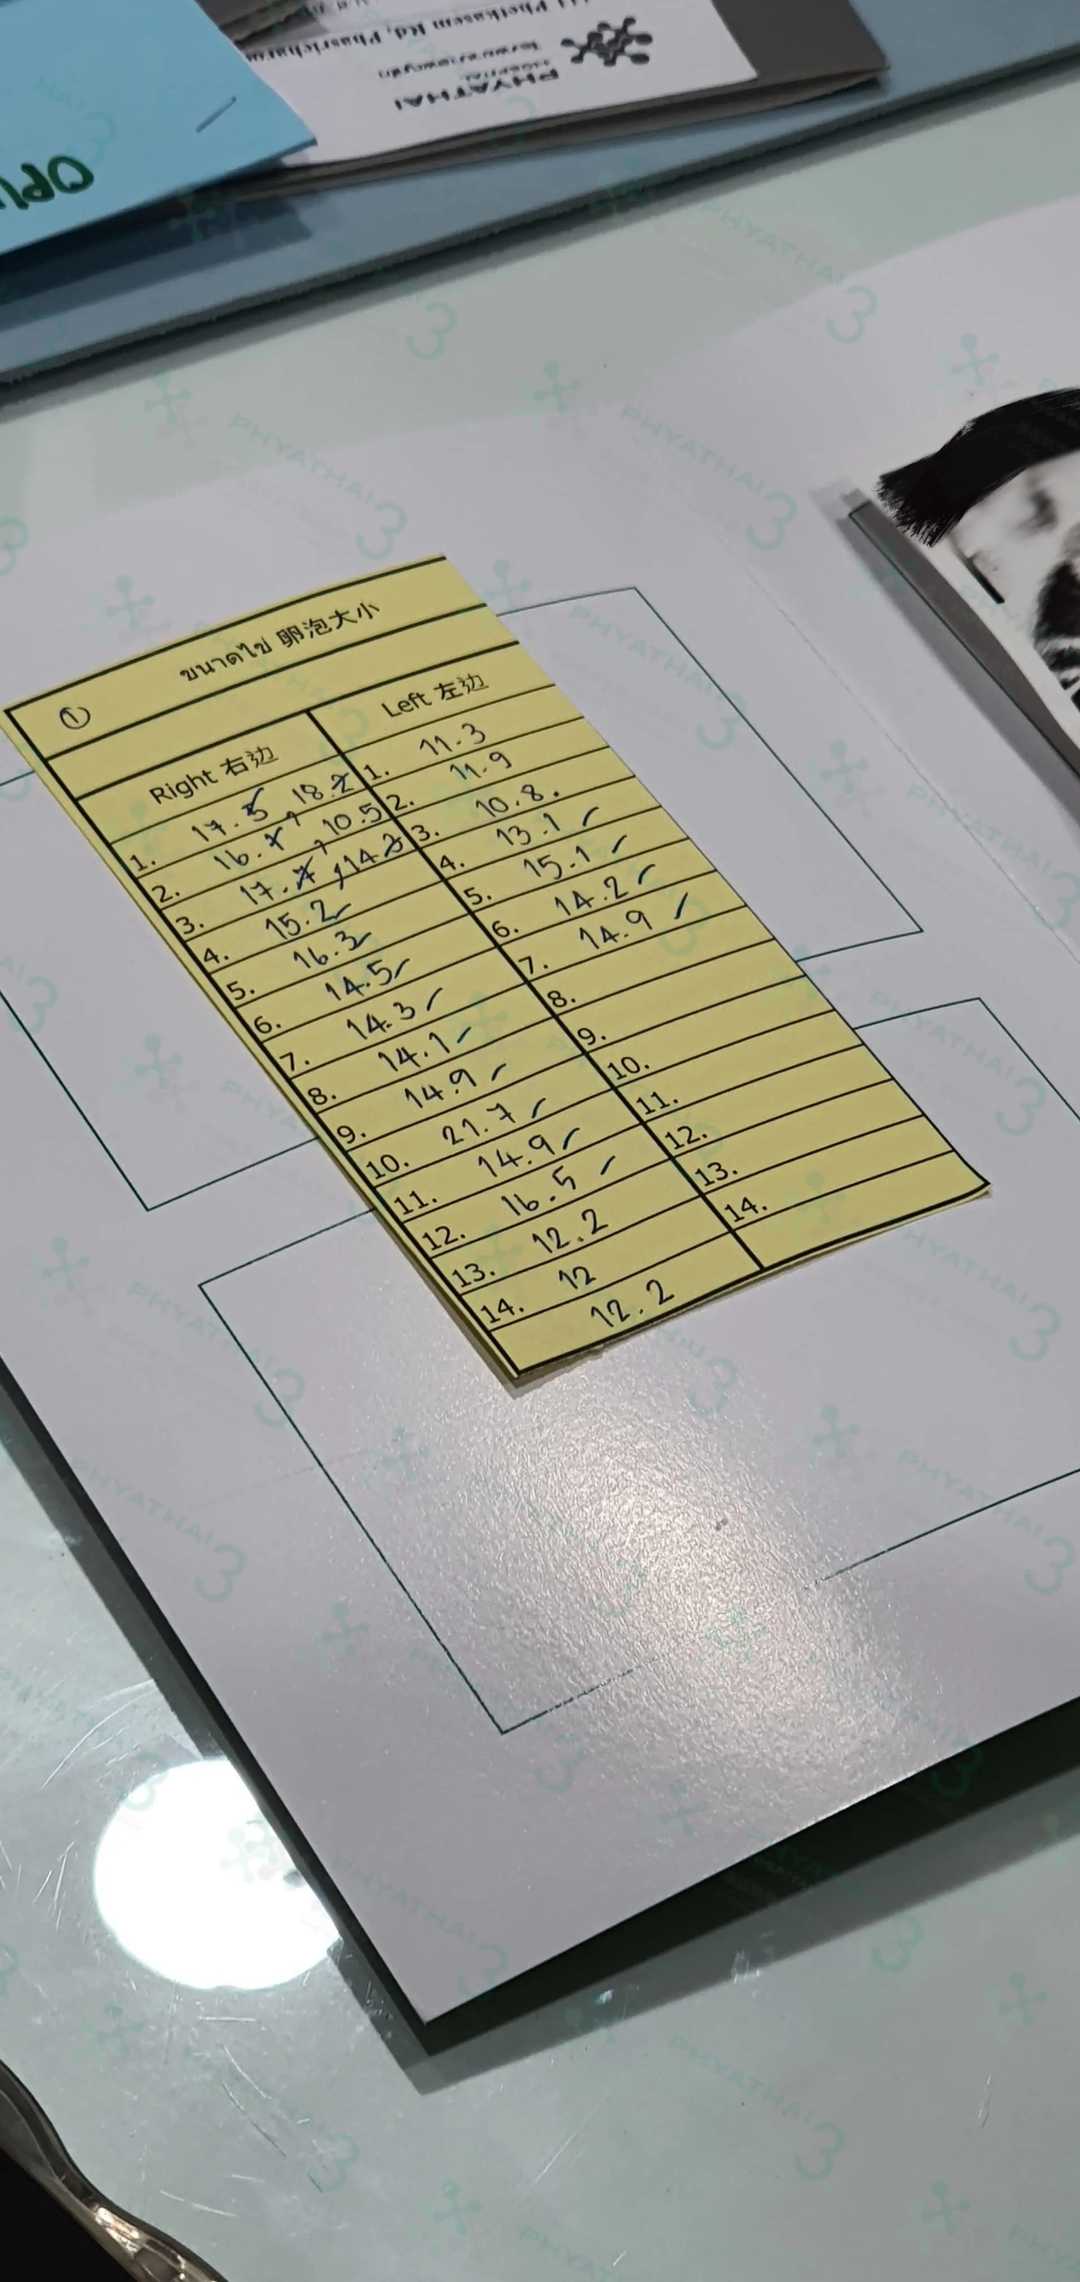 PHYATHAI
HOSPITAL
Phetkasem Rd, Phasicharoen
OPU
ขนาดไข่ 卵泡大小
①
Right 右边
Left 左边
1. 17.5, 18.2
2. 16.7, 10.5
3. 17.7, 14.2
4. 15.2 ✓
5. 16.3 ✓
6. 14.5 ✓
7. 14.3 ✓
8. 14.1 ✓
9. 14.9 ✓
10. 21.7 ✓
11. 14.9 ✓
12. 16.5 ✓
13. 12.2
14. 12
12.2
1. 11.3
2. 11.9
3. 10.8.
4. 13.1 ✓
5. 15.1 ✓
6. 14.2 ✓
7. 14.9 ✓
8.
9.
10.
11.
12.
13.
14.
PHYATHAI 3